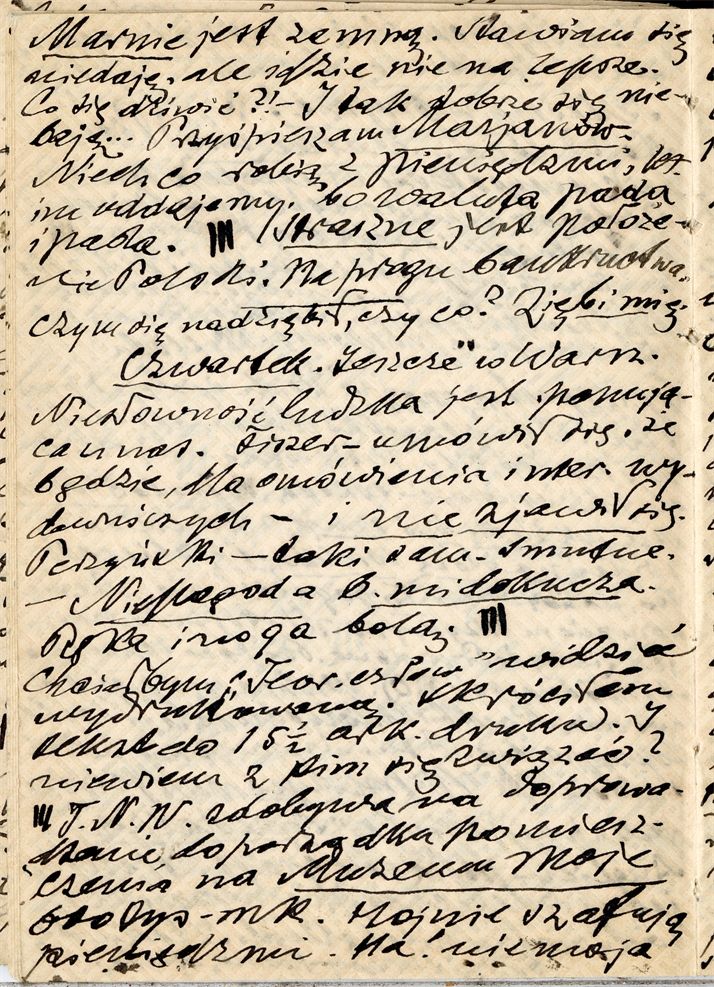 Marnie jest ze mną. Stawiam się,
nie daję, ale idzie nie na lepsze.
Co się dziwić?! – I tak dobrze się nie-
bają... Przyśpieszam Marjanów.
Niech co robią z pieniędzmi,
im oddajemy. bo waluta pada
i pada. III Straszne jest położe-
nie Polski. Na progu bankructwa,
czym się nadziębił, czy co? Ziębi mię.
Czwartek. Jeszcze w Warsz.
Niesłowność ludzka jest panują-
ca u nas. Fiszer – umówił się, że
będzie, dla omówienia inter. wy-
dawniczych – i nie zjawił się.
Perzyński – taki sam. Smutne.
– Niepogoda b. mi dokucza.
Ręka i noga bolą. III
Chciałbym „Teor. człow" widzieć
wydrukowaną. Skróciłem
tekst do 15½ ark. druku. I
nie wiem z kim się związać?
III T.N.W. zdobywa na doprowa-
dzenie do porządku pomiesz-
czenia na Muzeum Moje
tys-mk. Hojnie szafują
pieniędzmi. Ha! nie moja